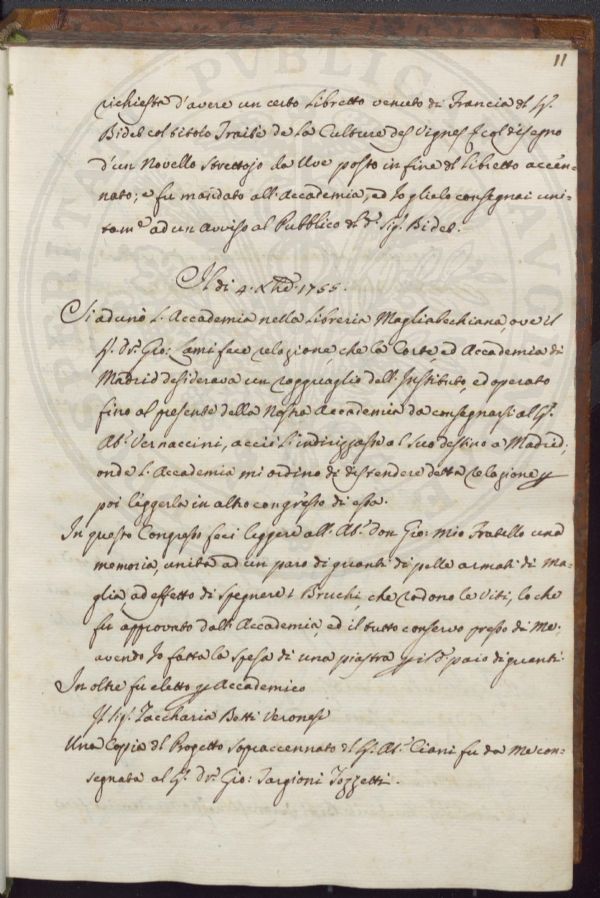 11
richiesta d'avere un certo Libretto venuto di Francia del Sr.
Bidet col titolo Traité de la Culture des Vignes & col disegno
d'un Novello Strettojo da Uve posto in fine del libretto accen=
nato; e fu mandato all'Accademia, ed Io glielo consegnai uni=
tam.e ad un Avviso al Pubblico del d.o Sig.r Bidet.
Il di 4. Xbre 1755.
Si adunò l'Accademia nella Libreria Magliabechiana ove il
Sr. Dr. Gio: Lami fece relazione, che la Corte ed Accademia di
Madrid desiderava un ragguaglio dell'Instituto, ed operato
fino al presente della Nostra Accademia da consegnarsi al Sr.
Ab.e Vernaccini, acciò l'indirizzasse al suo destino a Madrid;
onde l'Accademia mi ordinò di distendere detta relazione p
poi leggerla in altro congresso di essa.
In questo Congresso feci leggere all'Ab.e don Gio: mio Fratello una
memoria, unita ad un paro di guanti di pelle armati di Ma=
glia, ad effetto di spegnere i Bruchi, che rodono le Viti, lo che
fu approvato dall'Accademia, ed il tutto conservo presso di Me.
avendo Io fatta la spesa di una piastra p il d.o paio di guanti.
In oltre fu eletto p Accademico
Il Sig.r Zaccharia Betti Veronese
Una Copia del Progetto sopraccennato del Sr. Ab.e Ciani fu da Me con=
segnata al Sr. Dr. Gio: Targioni Tozzetti.